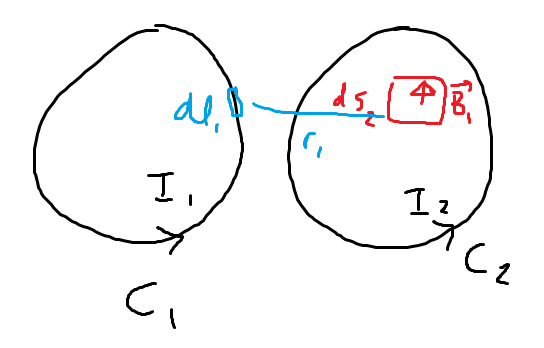 dl₁
r₁
ds₂
B⃗₁
I₁
I₂
C₁
C₂